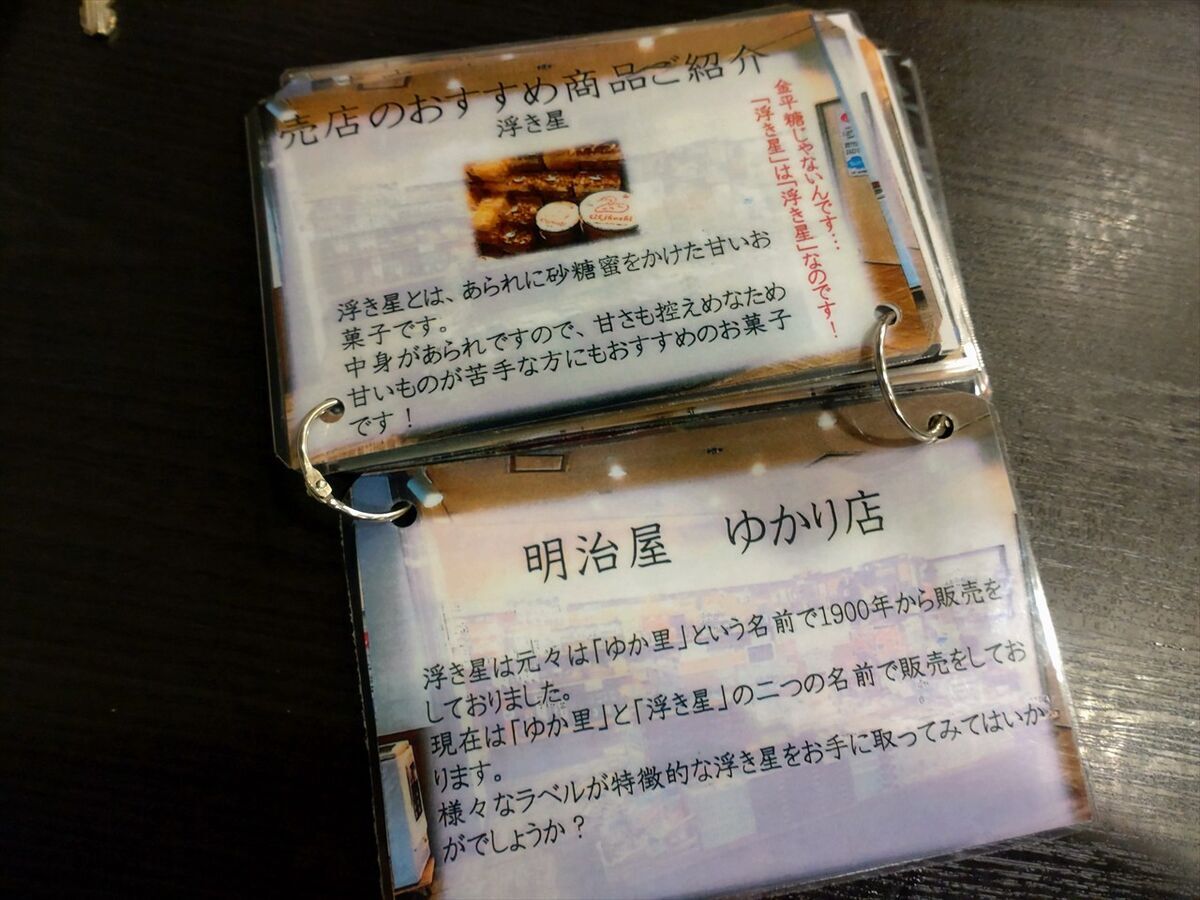 売店のおすすめ商品ご紹介
浮き星
金平糖じゃないんです…
「浮き星」は「浮き星」なのです!
浮き星とは、あられに砂糖蜜をかけた甘いお
菓子です。
中身があられですので、甘さも控えめなため
甘いものが苦手な方にもおすすめのお菓子
です!
明治屋 ゆかり店
浮き星は元々は「ゆか里」という名前で1900年から販売を
しておりました。
現在は「ゆか里」と「浮き星」の二つの名前で販売をしてお
ります。
様々なラベルが特徴的な浮き星をお手に取ってみてはいか
がでしょうか?